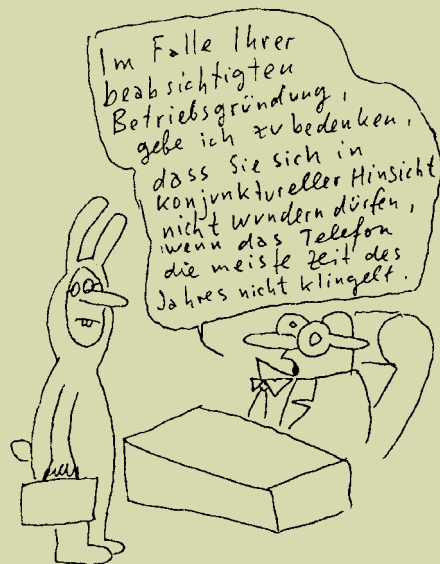 Im Falle Ihrer
beabsichtigten
Betriebsgründung,
gebe ich zu bedenken,
dass Sie sich in
konjunktureller Hinsicht
nicht wundern dürfen,
wenn das Telefon
die meiste Zeit des
Jahres nicht klingelt.